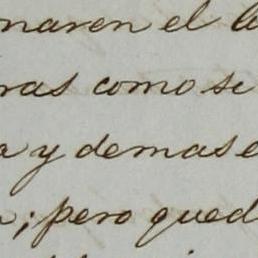 naren el
ras como se
a y demas e
; pero qued